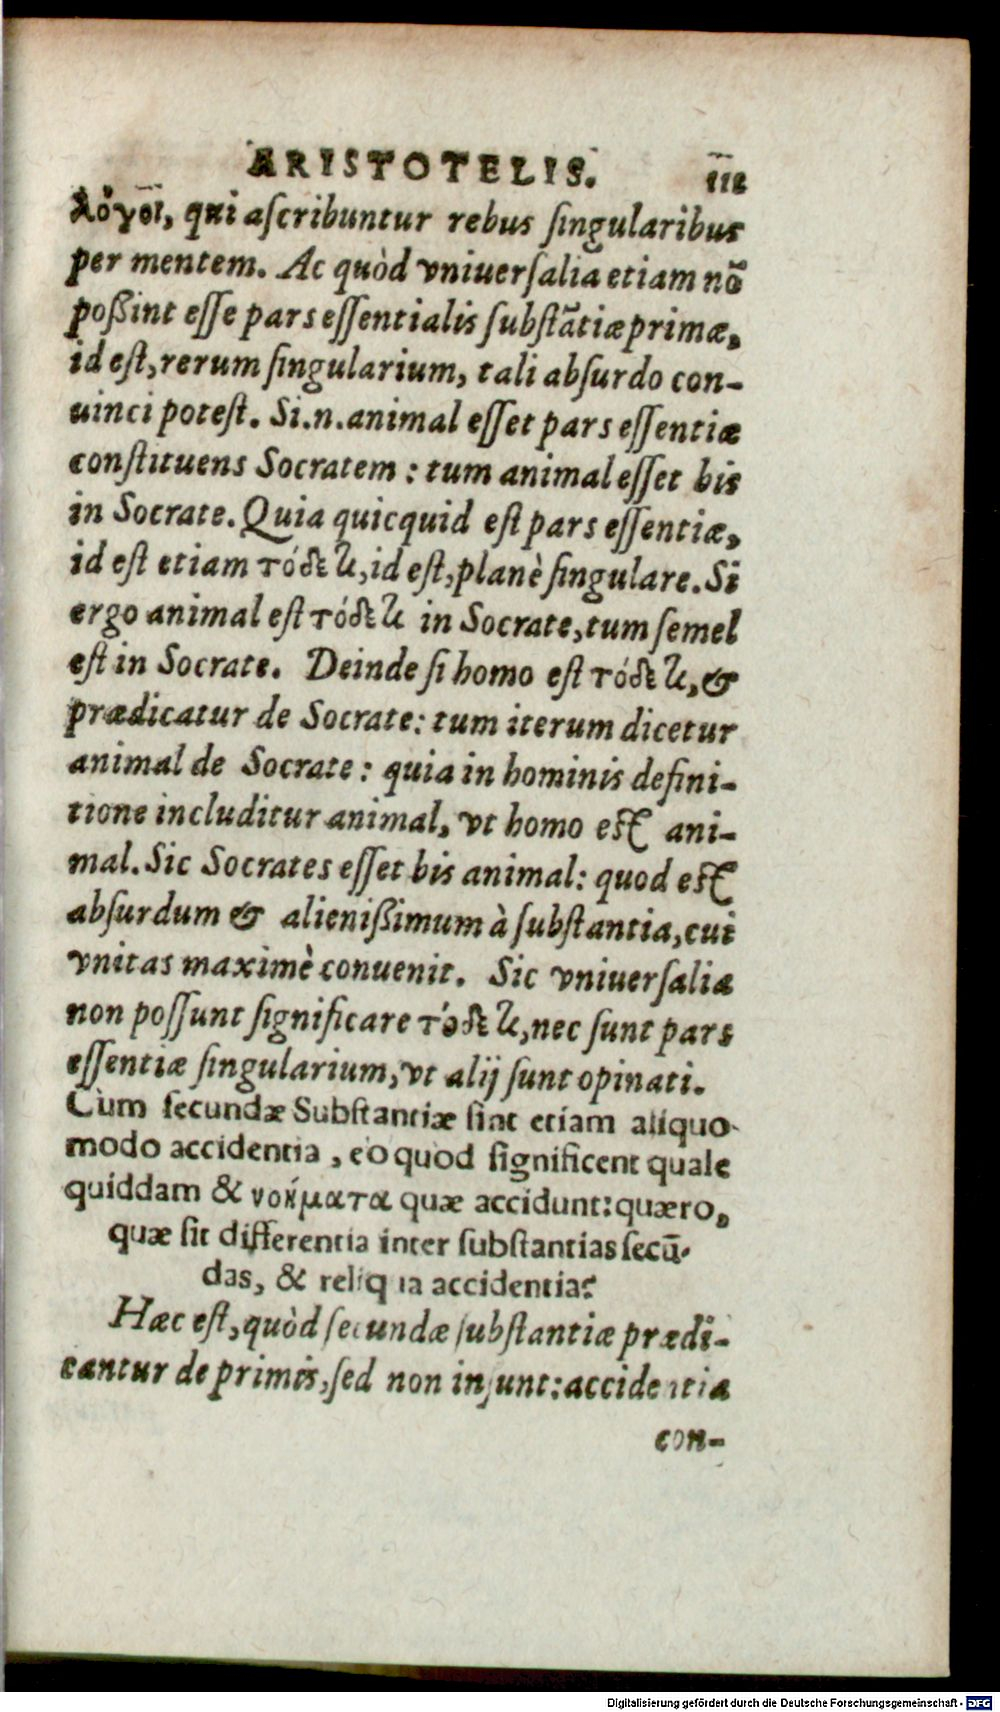 ARISTOTELIS. 111
λόγοι, qui ascribuntur rebus singularibus
per mentem. Ac quòd vniuersalia etiam nō
poßint esse pars essentialis substātiæ primæ,
id est, rerum singularium, tali absurdo con-
uinci potest. Si.n.animal esset pars essentiæ
constituens Socratem: tum animal esset bis
in Socrate. Quia quicquid est pars essentiæ,
id est etiam τόδε τι, id est, planè singulare. Si
ergo animal est τόδε τι in Socrate, tum semel
est in Socrate. Deinde si homo est τόδε τι, &
prædicatur de Socrate: tum iterum dicetur
animal de Socrate: quia in hominis defini-
tione includitur animal, vt homo est ani-
mal. Sic Socrates esset bis animal: quod est
absurdum & alienißimum à substantia, cui
vnitas maximè conuenit. Sic vniuersalia
non possunt significare τόδε τι, nec sunt pars
essentiæ singularium, vt alij sunt opinati.
Cùm secundæ Substantiæ sint etiam aliquo-
modo accidentia, eo quod significent quale
quiddam & νοήματα quæ accidunt: quæro,
quæ sit differentia inter substantias secū-
das, & reliqua accidentia?
Hæc est, quòd secundæ substantiæ prædi-
cantur de primis, sed non insunt: accidentia
con-
Digitalisierung gefördert durch die Deutsche Forschungsgemeinschaft - DFG